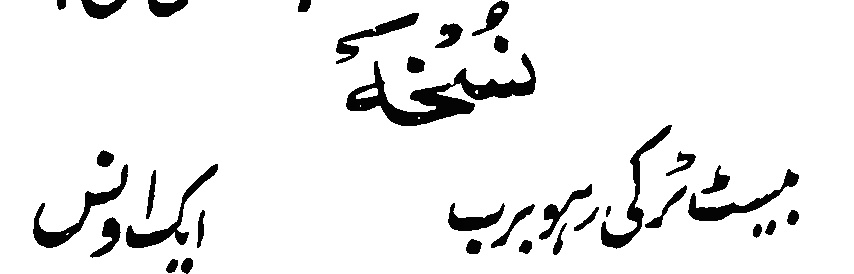 نُسْخَہ
بیسٹ ٹرکی رہوبرب ایک اونس